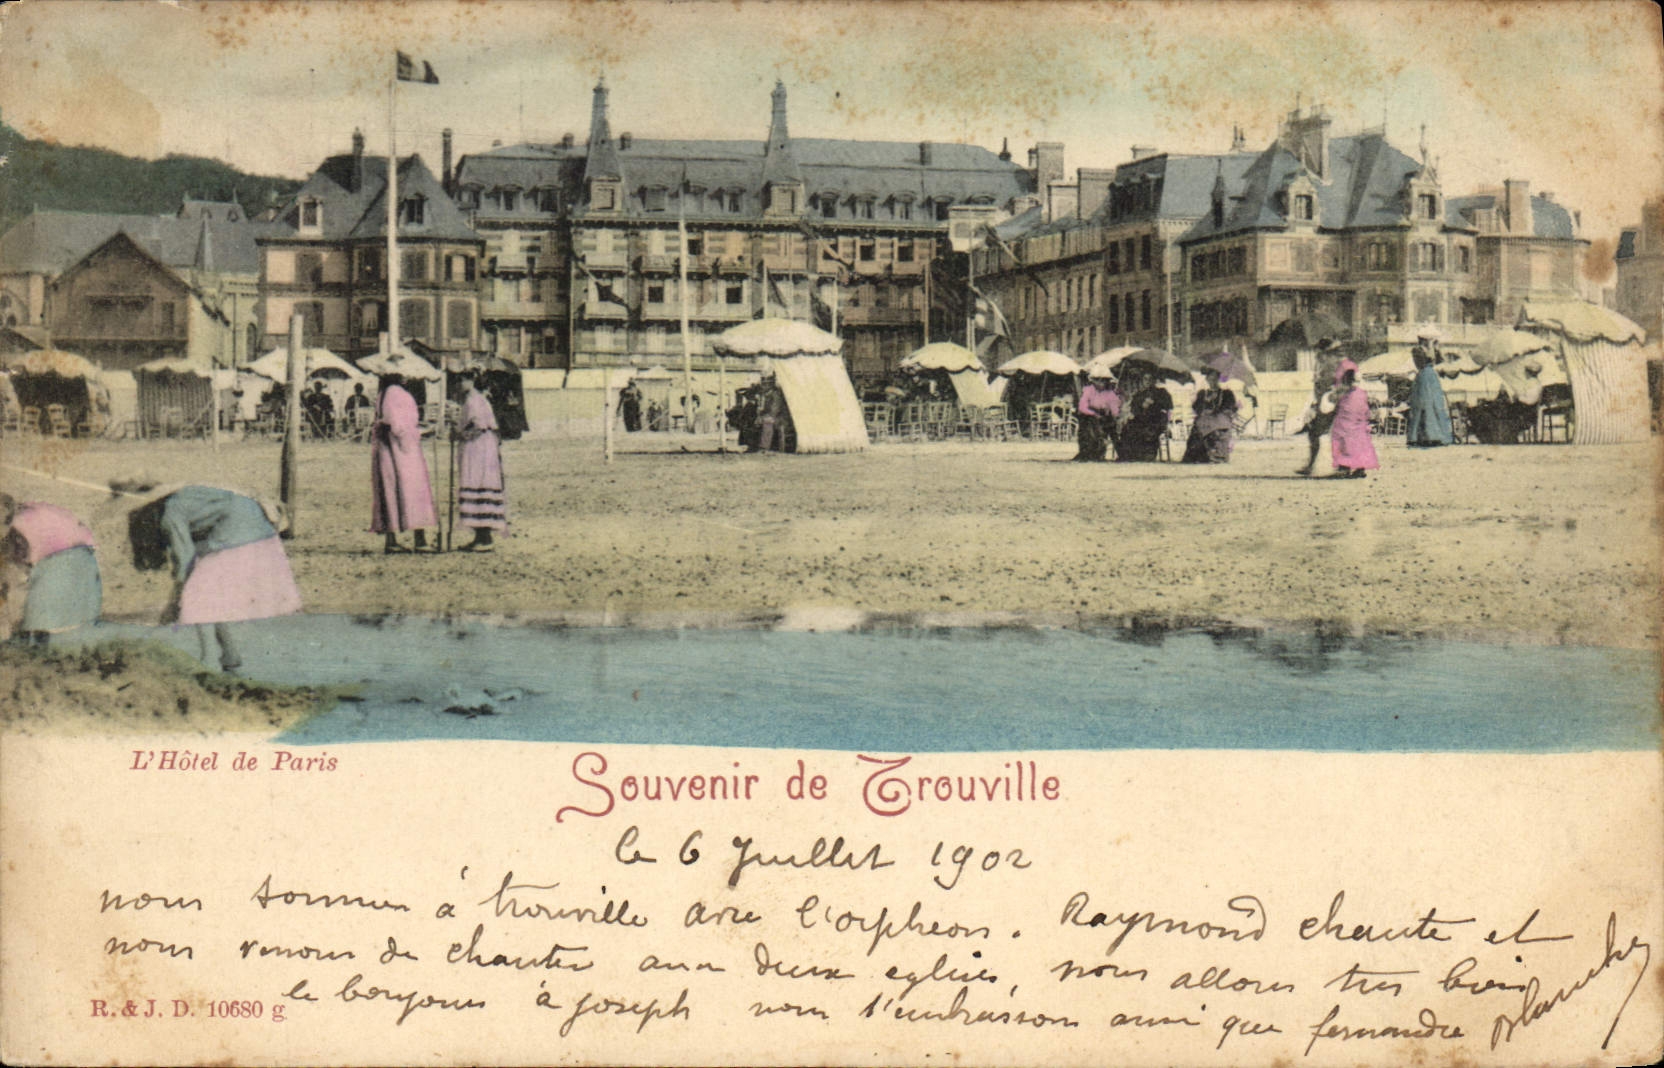 L'Hôtel de Paris
Souvenir de Trouville
le 6 Juillet 1902
nous sommes à trouville avec l'orpheon. Raymond chante et
nous venons de chanter aux deux eglises, nous allons tres bien
le bonjour à joseph nous t'embrassons ainsi que fernande blanche
R. & J. D. 10680 g